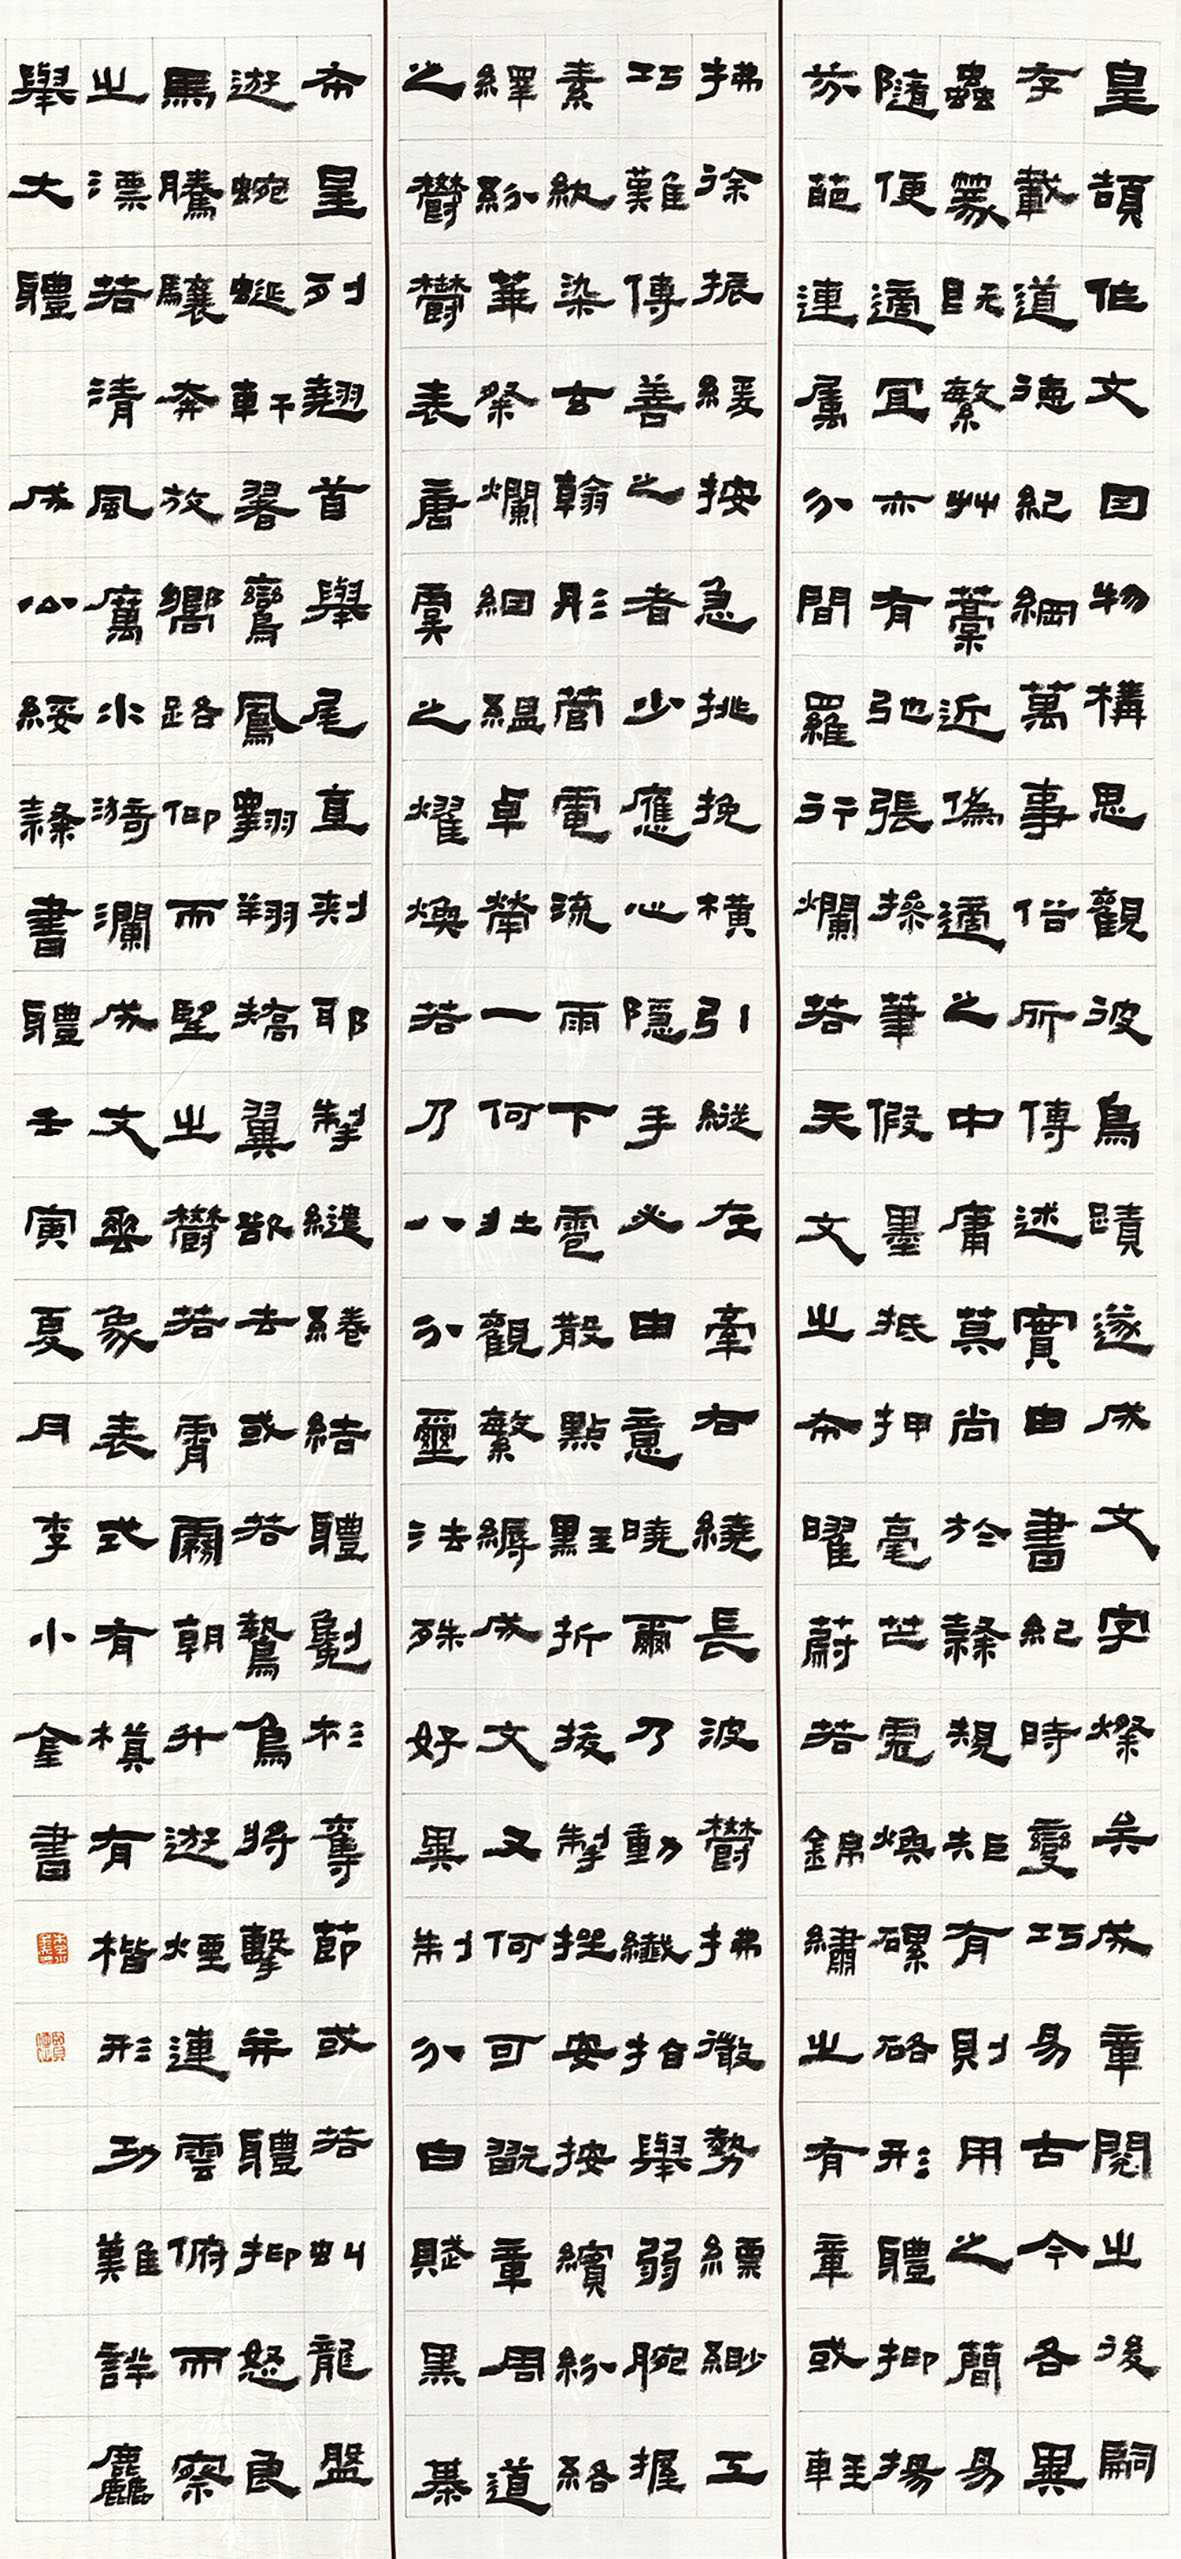 皇頡作文因物構思觀彼鳥蹟遂成文字燦矣成章閱之後嗣
存載道德紀綱萬事俗所傳述實由書紀時變巧易古今各異
蟲篆既繁艸藁近偽適之中庸莫尚於隸規矩有則用之簡易
隨便適宜亦有弛張操筆假墨抵押毫芒彪煥磥硌形體抑揚
芬葩連属分間羅行爛若天文之布曜蔚若錦繡之有章或輕
拂徐振緩按急挑挽橫引縱左牽右繞長波鬱拂微勢縹緲工
巧難傳善之者少應心隱手必由意曉爾乃動纖指舉弱腕握
素紈染玄翰彤管電流雨下雹散點黈折拔掣挫安按繽紛絡
繹紛華粲爛絪縕卓犖一何壯觀繁縟成文又何可翫章周道
之鬱鬱表唐虞之耀煥若乃八分璽法殊好異制分白賦黑棊
布星列翹首舉尾直刺邪掣繾綣結體劖衫奪節或若虯龍盤
遊蜿蜒軒翥鸞鳳翱翔矯翼欲去或若鷙鳥將擊并體抑怒良
馬騰驤奔放嚮路仰而望之鬱若霄霧朝升遊煙連雲俯而察
之漂若清風厲水漪瀾成文垂象表式有模有楷形功難詳麤
舉大體 成公綏隸書體壬寅夏月李小奎書